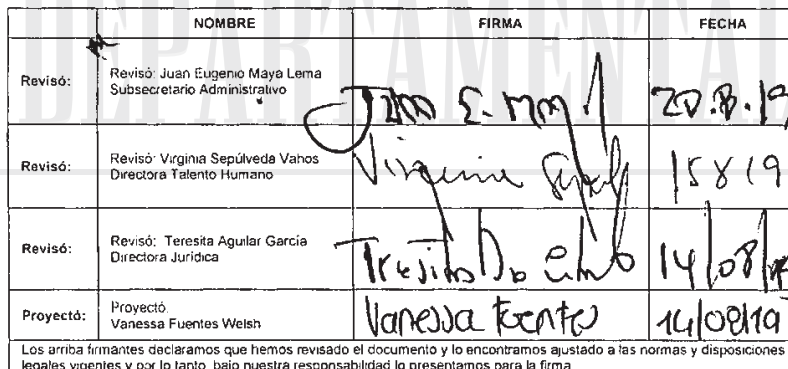 DEPARTAMENTAL
NOMBRE FIRMA FECHA
Revisó: Revisó: Juan Eugenio Maya Lema
Subsecretario Administrativo 20.8.19
Revisó: Revisó: Virginia Sepúlveda Vahos
Directora Talento Humano Virginia 15 8 19
Revisó: Revisó: Teresita Aguilar García
Directora Jurídica 14/08/19
Proyectó: Proyectó:
Vanessa Fuentes Welsh Vanessa Fuentes 14/08/19
Los arriba firmantes declaramos que hemos revisado el documento y lo encontramos ajustado a las normas y disposiciones
legales vigentes y por lo tanto, bajo nuestra responsabilidad lo presentamos para la firma